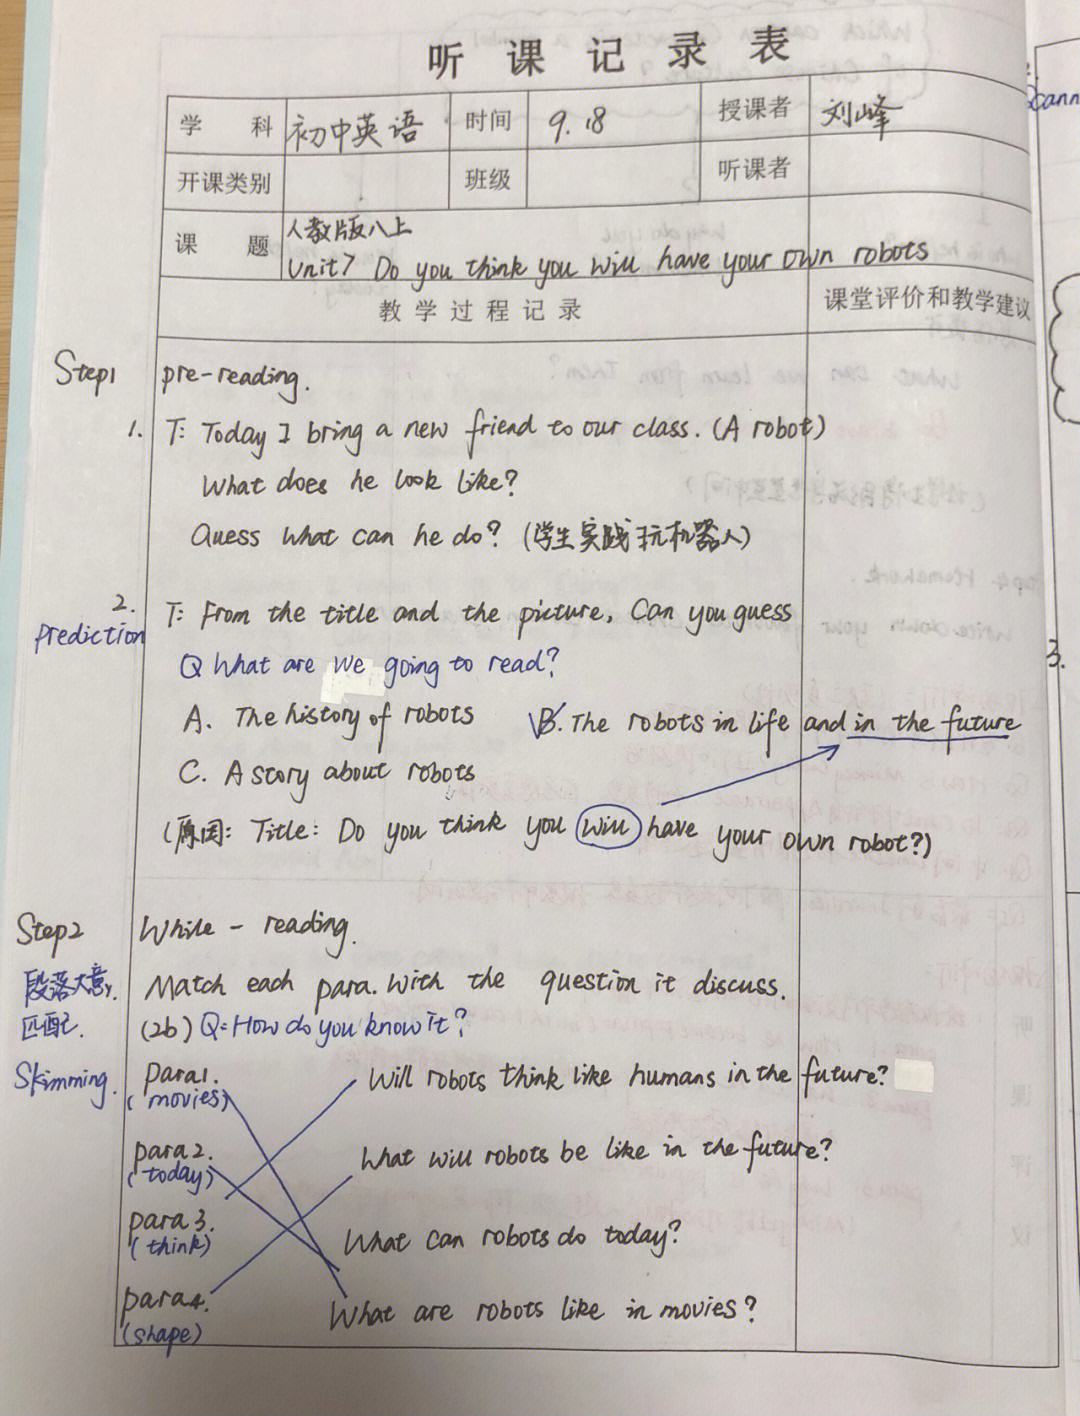 听 课 记 录 表
学 科 初中英语 时间 9.18 授课者 刘峰
开课类别 班级 听课者
课 题 人教版八上
Unit7 Do you think you will have your own robots
教 学 过 程 记 录 课堂评价和教学建议
Step1 pre-reading.
1. T: Today I bring a new friend to our class. (A robot)
What does he look like?
Guess what can he do? (学生实践玩机器人)
2. T: From the title and the picture, Can you guess
prediction
Q What are we going to read?
A. The history of robots B. The robots in life and in the future
C. A story about robots
(原因: Title: Do you think you will have your own robot?)
Step2 While - reading.
段落大意 Match each para. with the question it discuss.
匹配. (2b) Q: How do you know it?
Skimming. para1. Will robots think like humans in the future?
(movies)
para2. What will robots be like in the future?
(today)
para3. What can robots do today?
(think)
para4. What are robots like in movies?
(shape)
3.